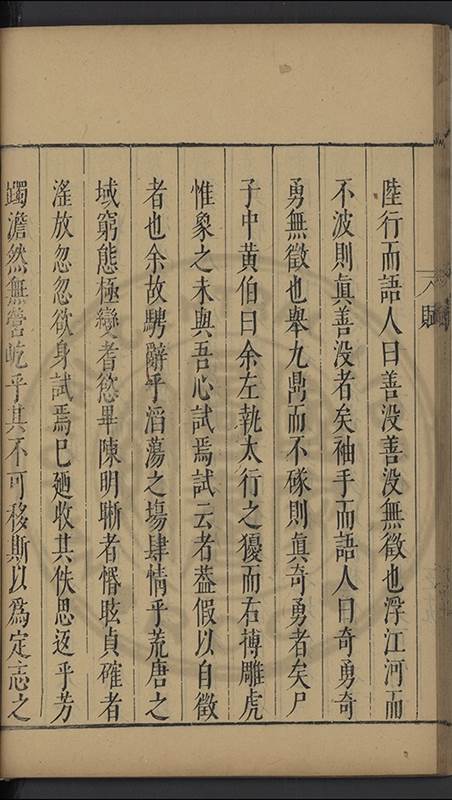 陸行而語人曰善没善没無徵也浮江河而
不波則眞善没者矣袖手而語人曰奇勇奇
勇無徵也舉九鼎而不礙則眞奇勇者矣尸
子中黃伯曰余左執太行之獶而右搏雕虎
惟象之未與吾心試焉試云者葢假以自徵
者也余故騁辭乎滔蕩之塲肆情乎荒唐之
域窮態極變者慾畢陳明晰者惽眩貞確者
滛放忽忽欲身試焉巳廼收其佚思返乎芳
躅澹然無營屹乎其不可移斯以爲定志之
賦